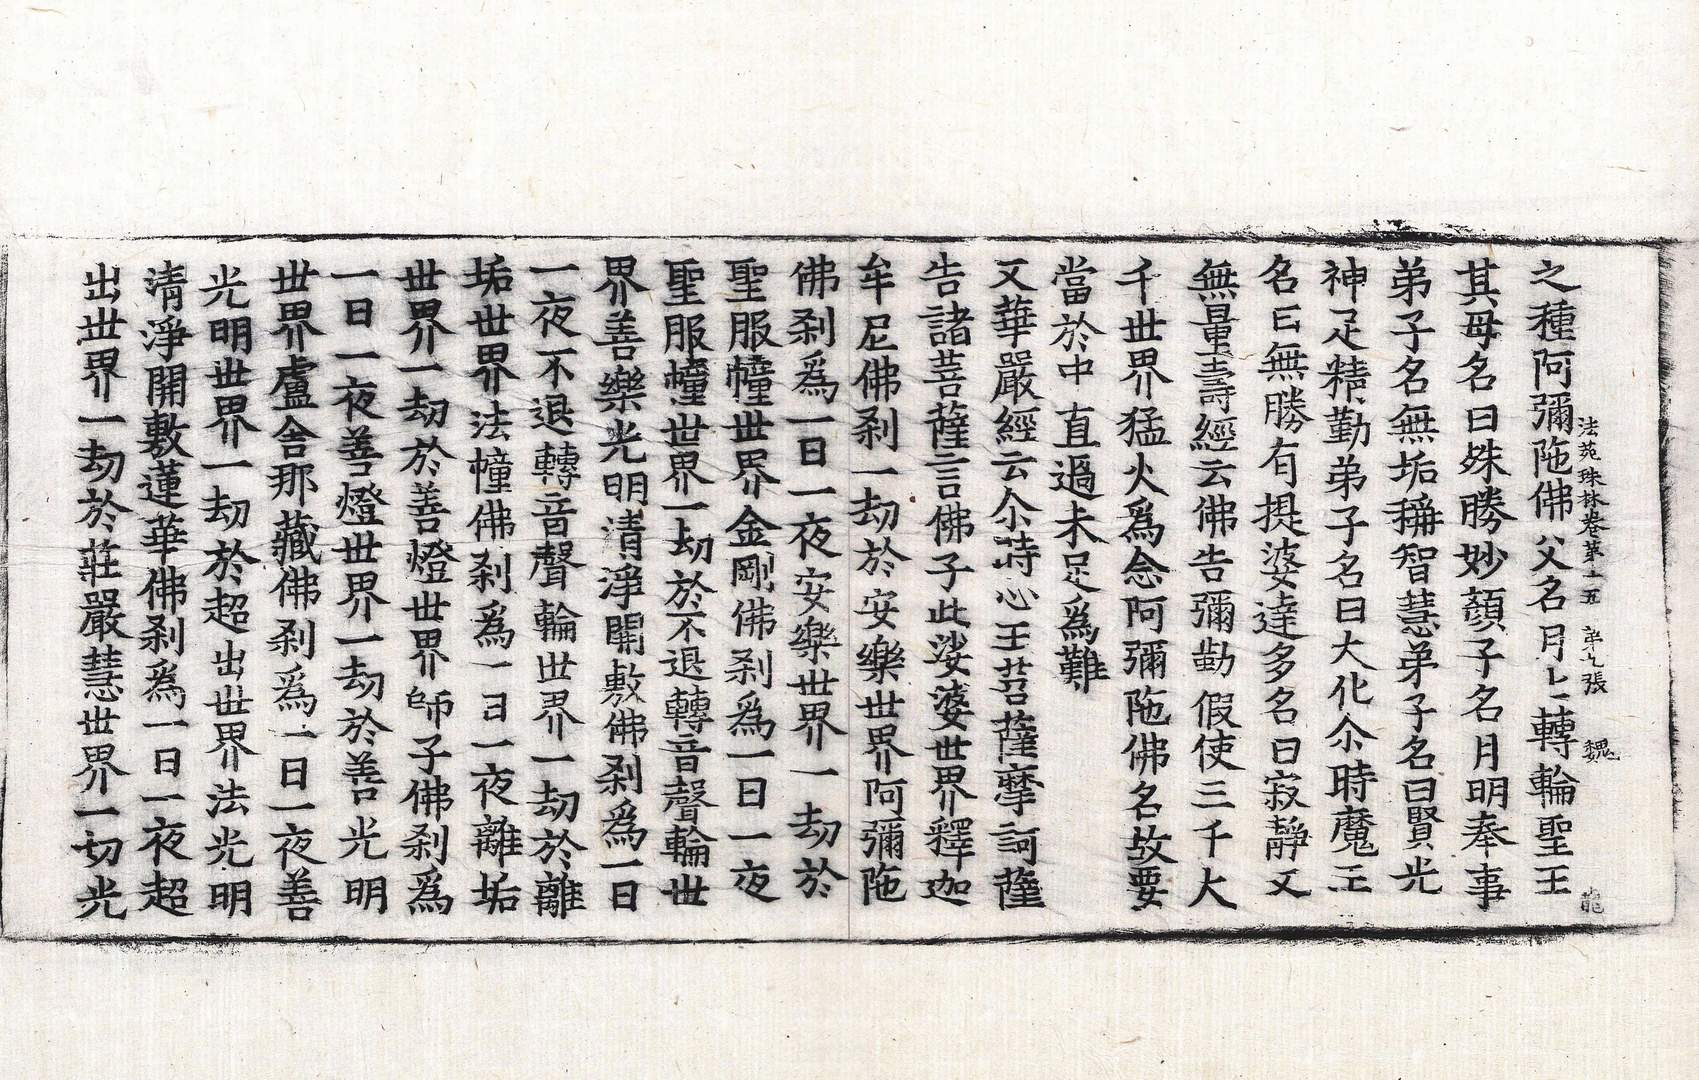 法苑珠林卷第十五 第九張 魏 龍
之種阿彌陁佛父名月上轉輪聖王
其母名曰殊勝妙顔子名月明奉事
弟子名無垢稱智慧弟子名曰賢光
神足精勤弟子名曰大化尒時魔王
名曰無勝有提婆達多名曰寂靜又
無量壽經云佛告彌勒假使三千大
千世界猛火爲念阿彌陁佛名故要
當於中直過未足爲難
又華嚴經云尒時心王菩薩摩訶薩
告諸菩薩言佛子此娑婆世界釋迦
牟尼佛刹一劫於安樂世界阿彌陁
佛刹爲一日一夜安樂世界一劫於
聖服幢世界金剛佛刹爲一日一夜
聖服幢世界一劫於不退轉音聲輪世
界善樂光明清淨開敷佛刹爲一日
一夜不退轉音聲輪世界一劫於離
垢世界法幢佛刹爲一日一夜離垢
世界一劫於善燈世界師子佛刹爲
一日一夜善燈世界一劫於善光明
世界盧舍那藏佛刹爲一日一夜善
光明世界一劫於超出世界法光明
清淨開敷蓮華佛刹爲一日一夜超
出世界一劫於莊嚴慧世界一切光